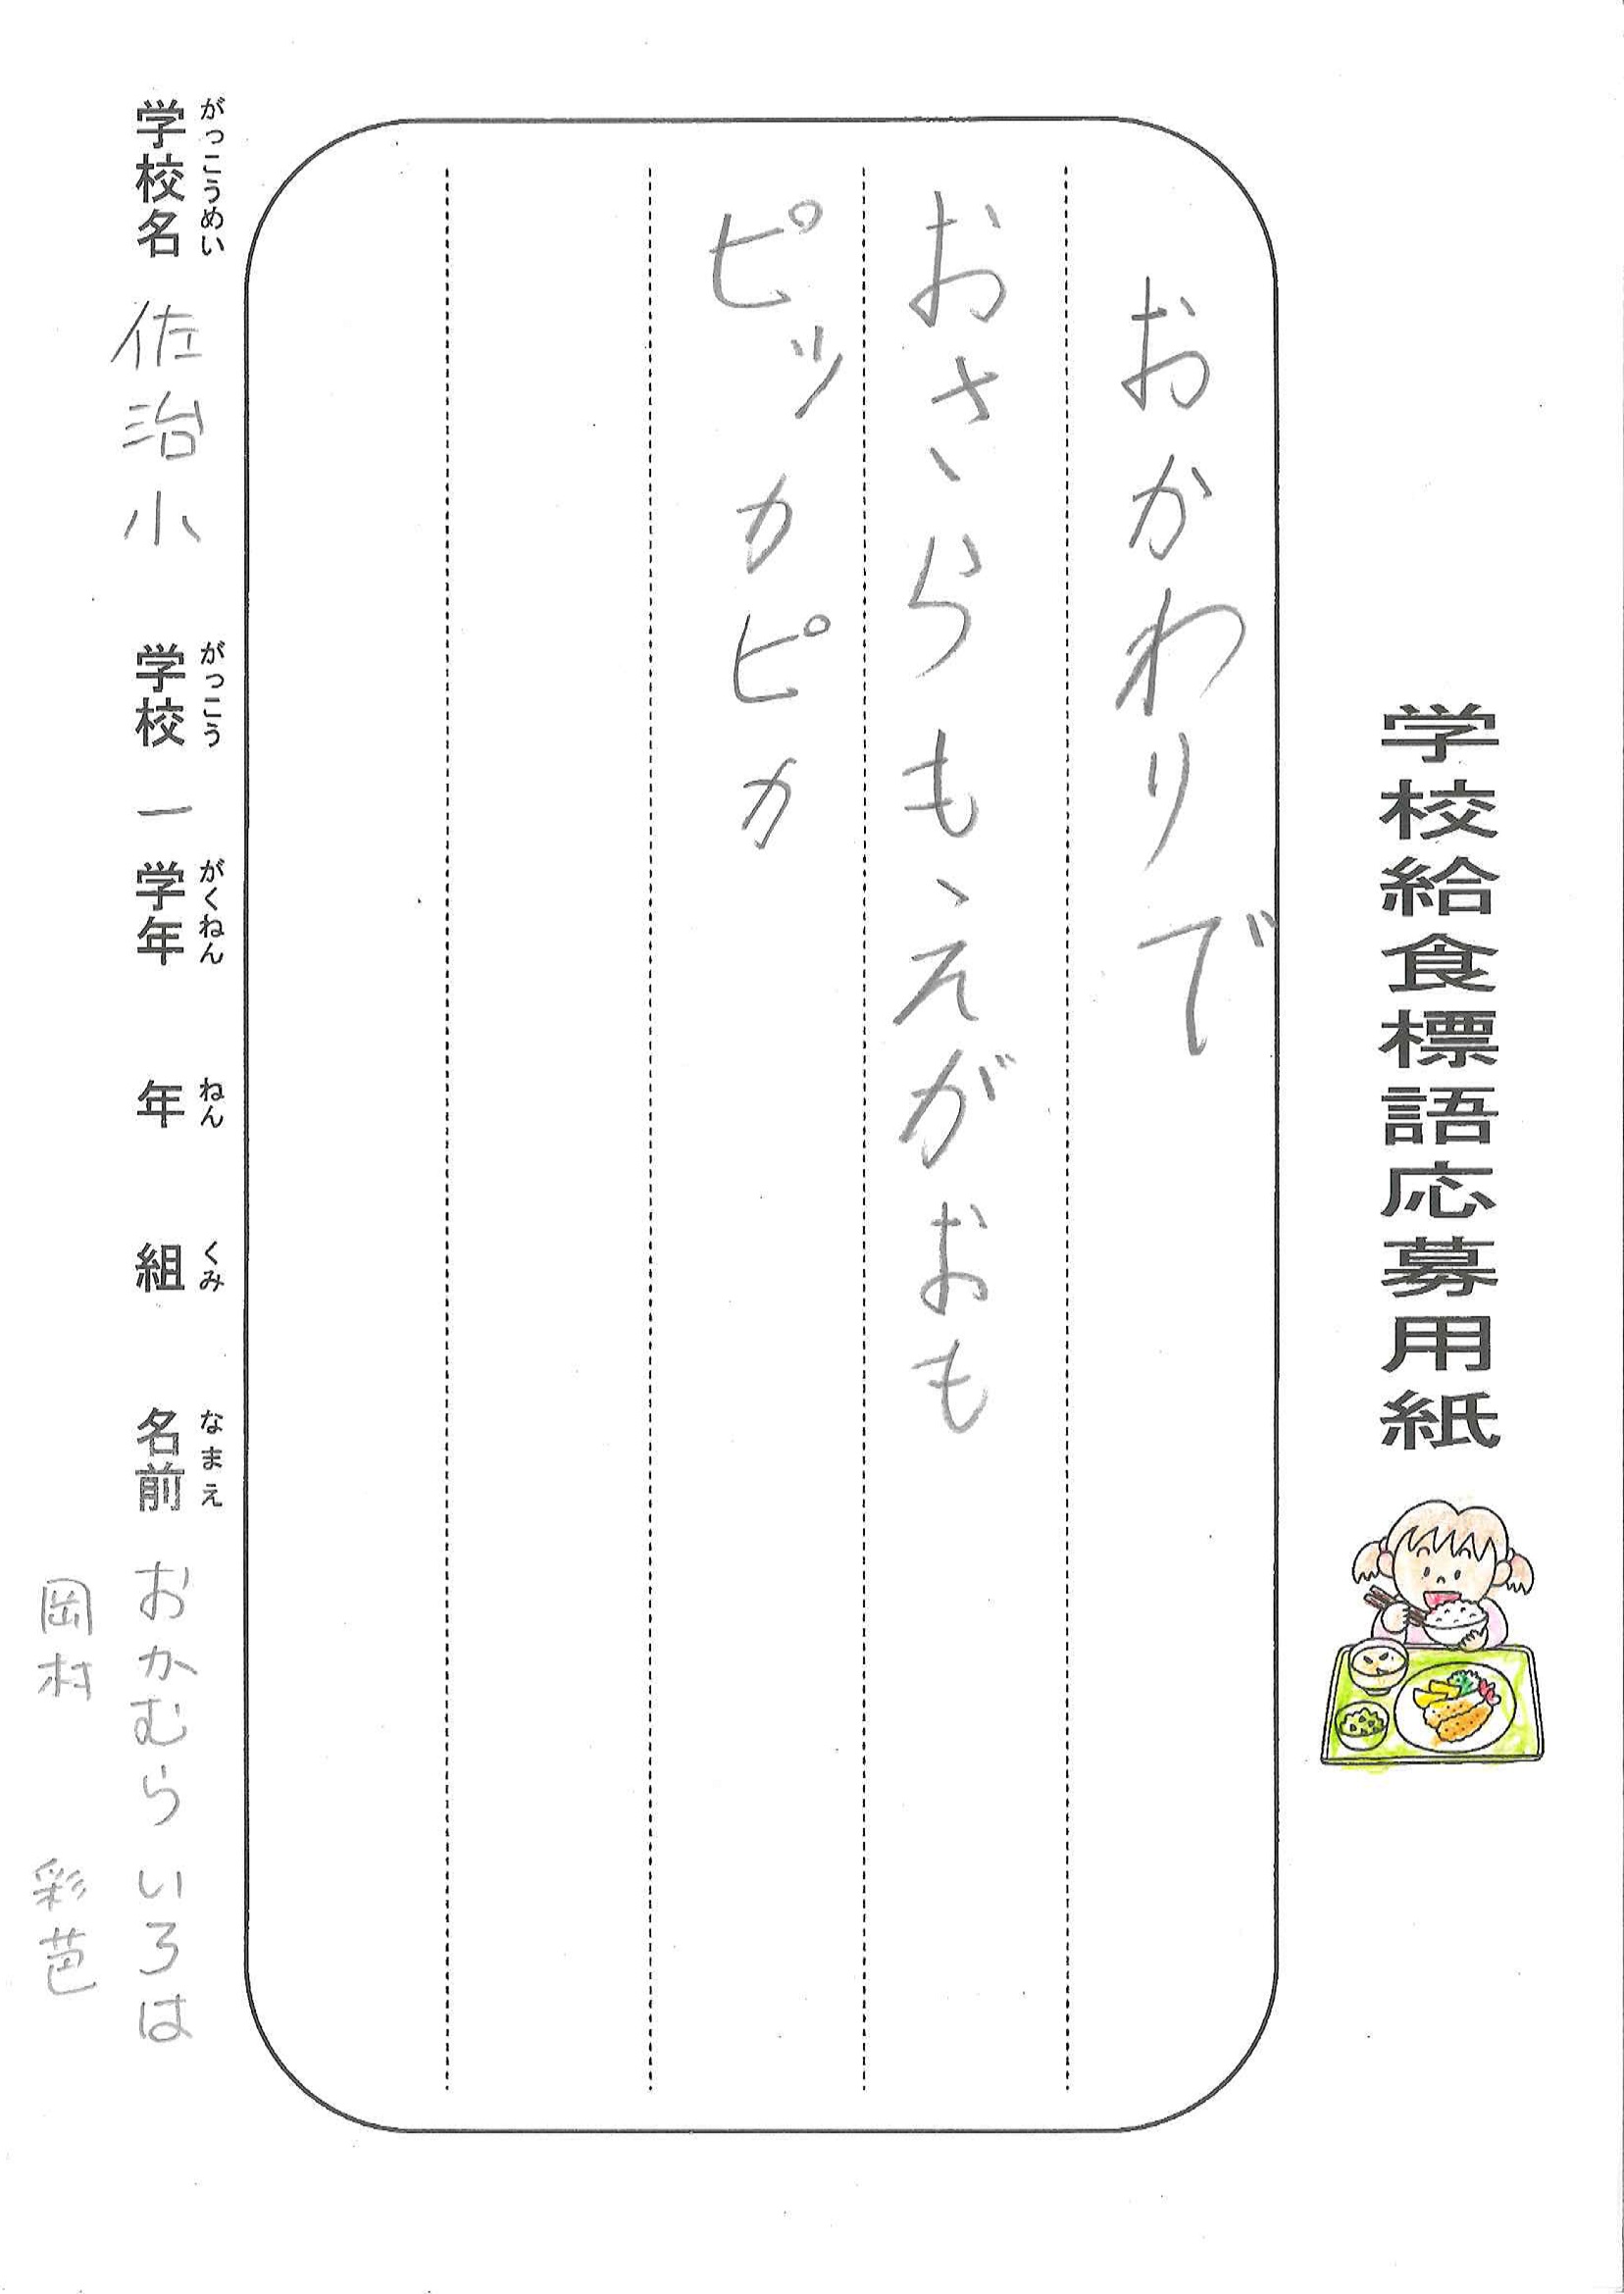 学校給食標語応募用紙
おかわりで
おさらもえがおも
ピッカピカ
がっこうめい がっこう がくねん ねん くみ なまえ
学校名 佐治小 学校 一 学年 年 組 名前 おかむら いろは
岡村 彩芭